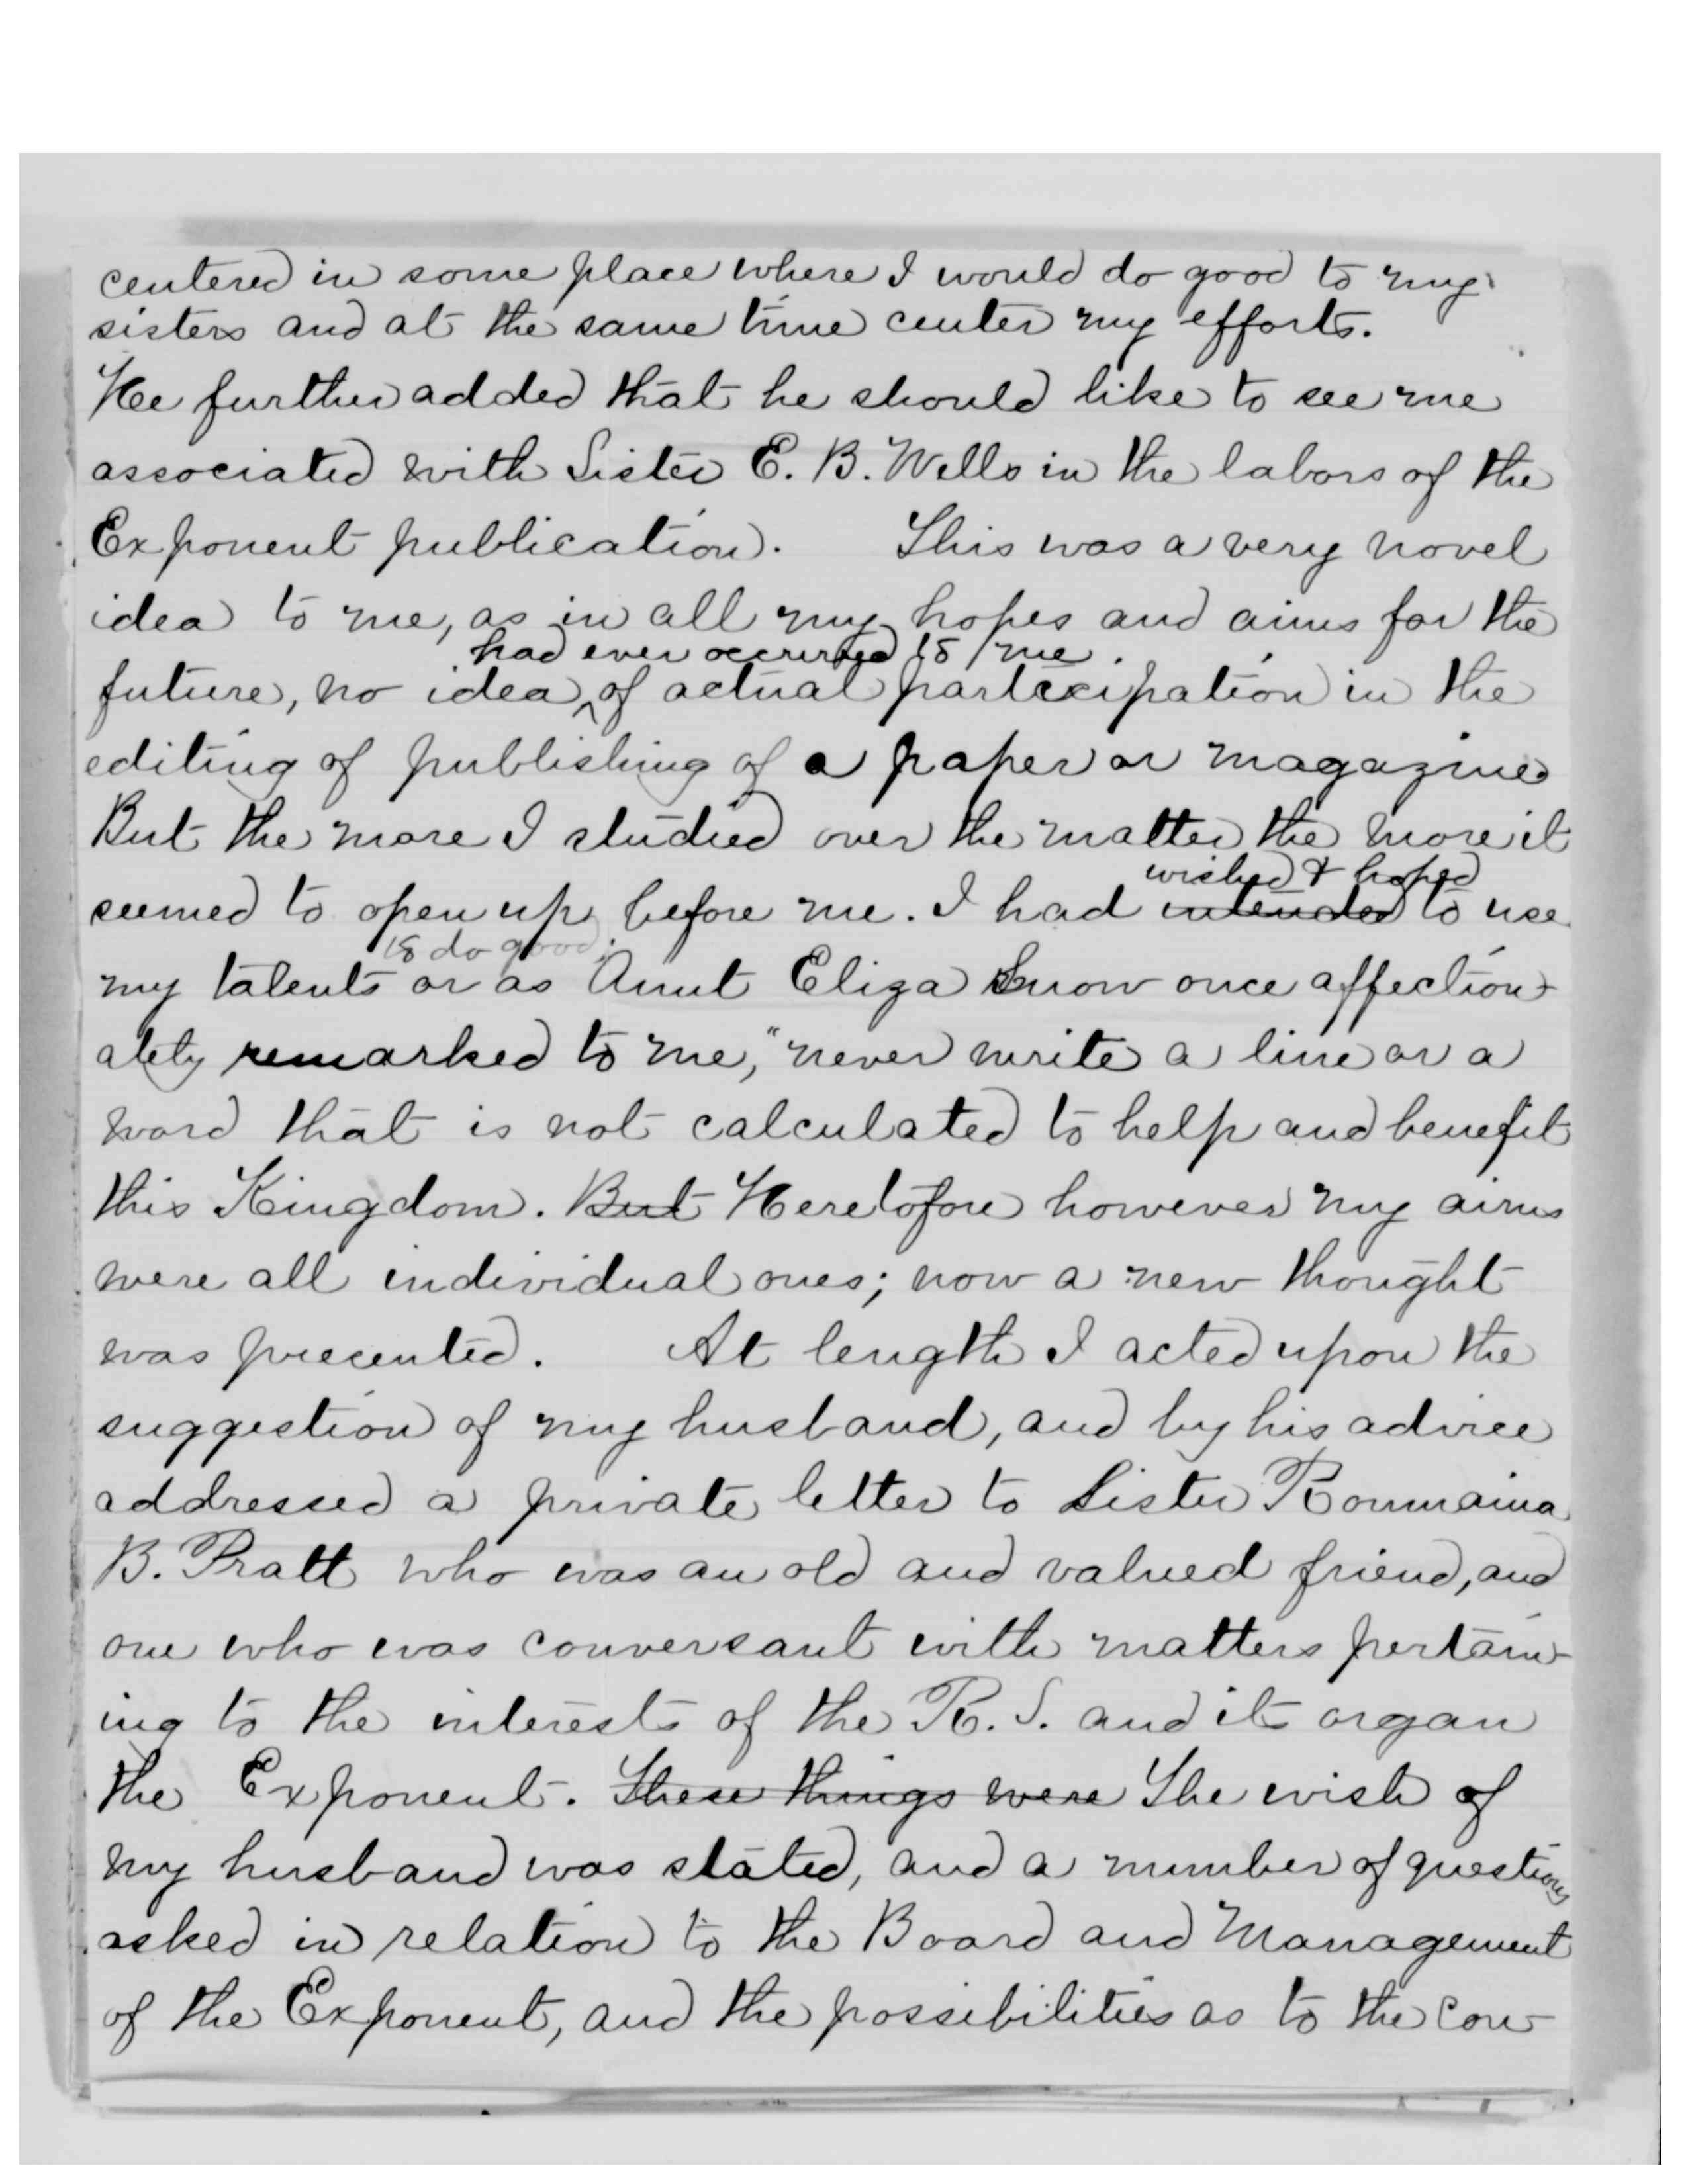 centered in some place where I would do good to my
sisters and at the same time center my efforts.
He further added that he should like to see me
associated with Sister E. B. Wells in the labors of the
Exponent publication. This was a very novel
idea to me, as in all my hopes and aims for the
had ever occurred to me.
future, no idea ^ of actual participation in the
editing of publishing of a paper or magazine
But the more I studied over the matter the more it
wished & hoped
seemed to open up before me. I had intended to use
to do good.
my talents or as Aunt Eliza Snow once affection-
ately remarked to me, "never write a line or a
word that is not calculated to help and benefit
this Kingdom. But Heretofore however my aims
were all individual ones; now a new thought
was presented. At length I acted upon the
suggestion of my husband, and by his advice
addressed a private letter to Sister Roumaina
B. Pratt who was an old and valued friend, and
one who was conversant with matters pertain-
ing to the interests of the R. S. and its organ
the Exponent. These things were The wish of
my husband was stated, and a number of questions
asked in relation to the Board and Management
of the Exponent, and the possibilities as to the con-